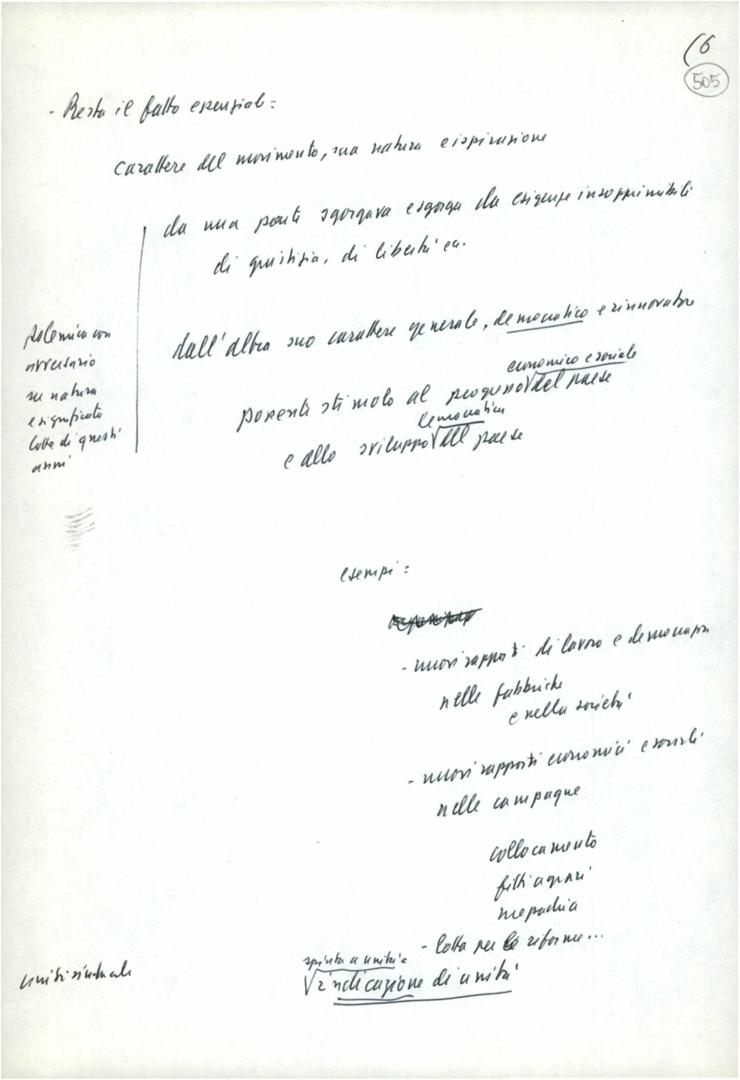 (6
505
- Resta il fatto essenziale:
carattere del movimento, sua natura e ispirazione
da una parte sgorgava e sgorga da esigenze insopprimibili
di giustizia, di libertà ecc.
dall'altra suo carattere generale, democratico e rinnovatore
economico e sociale
potente stimolo al progresso √ del paese
democratico
e allo sviluppo √ del paese
polemica con
avversario
su natura
e significato
lotte di questi
anni
esempi:
- nuovi rapporti di lavoro e democrazia
nelle fabbriche
e nella società
- nuovi rapporti economici e sociali
nelle campagne
collocamento
fitti agrari
mezzadria
- lotta per le riforme...
spinta a unità e
√ indicazione di unità
unità sindacale